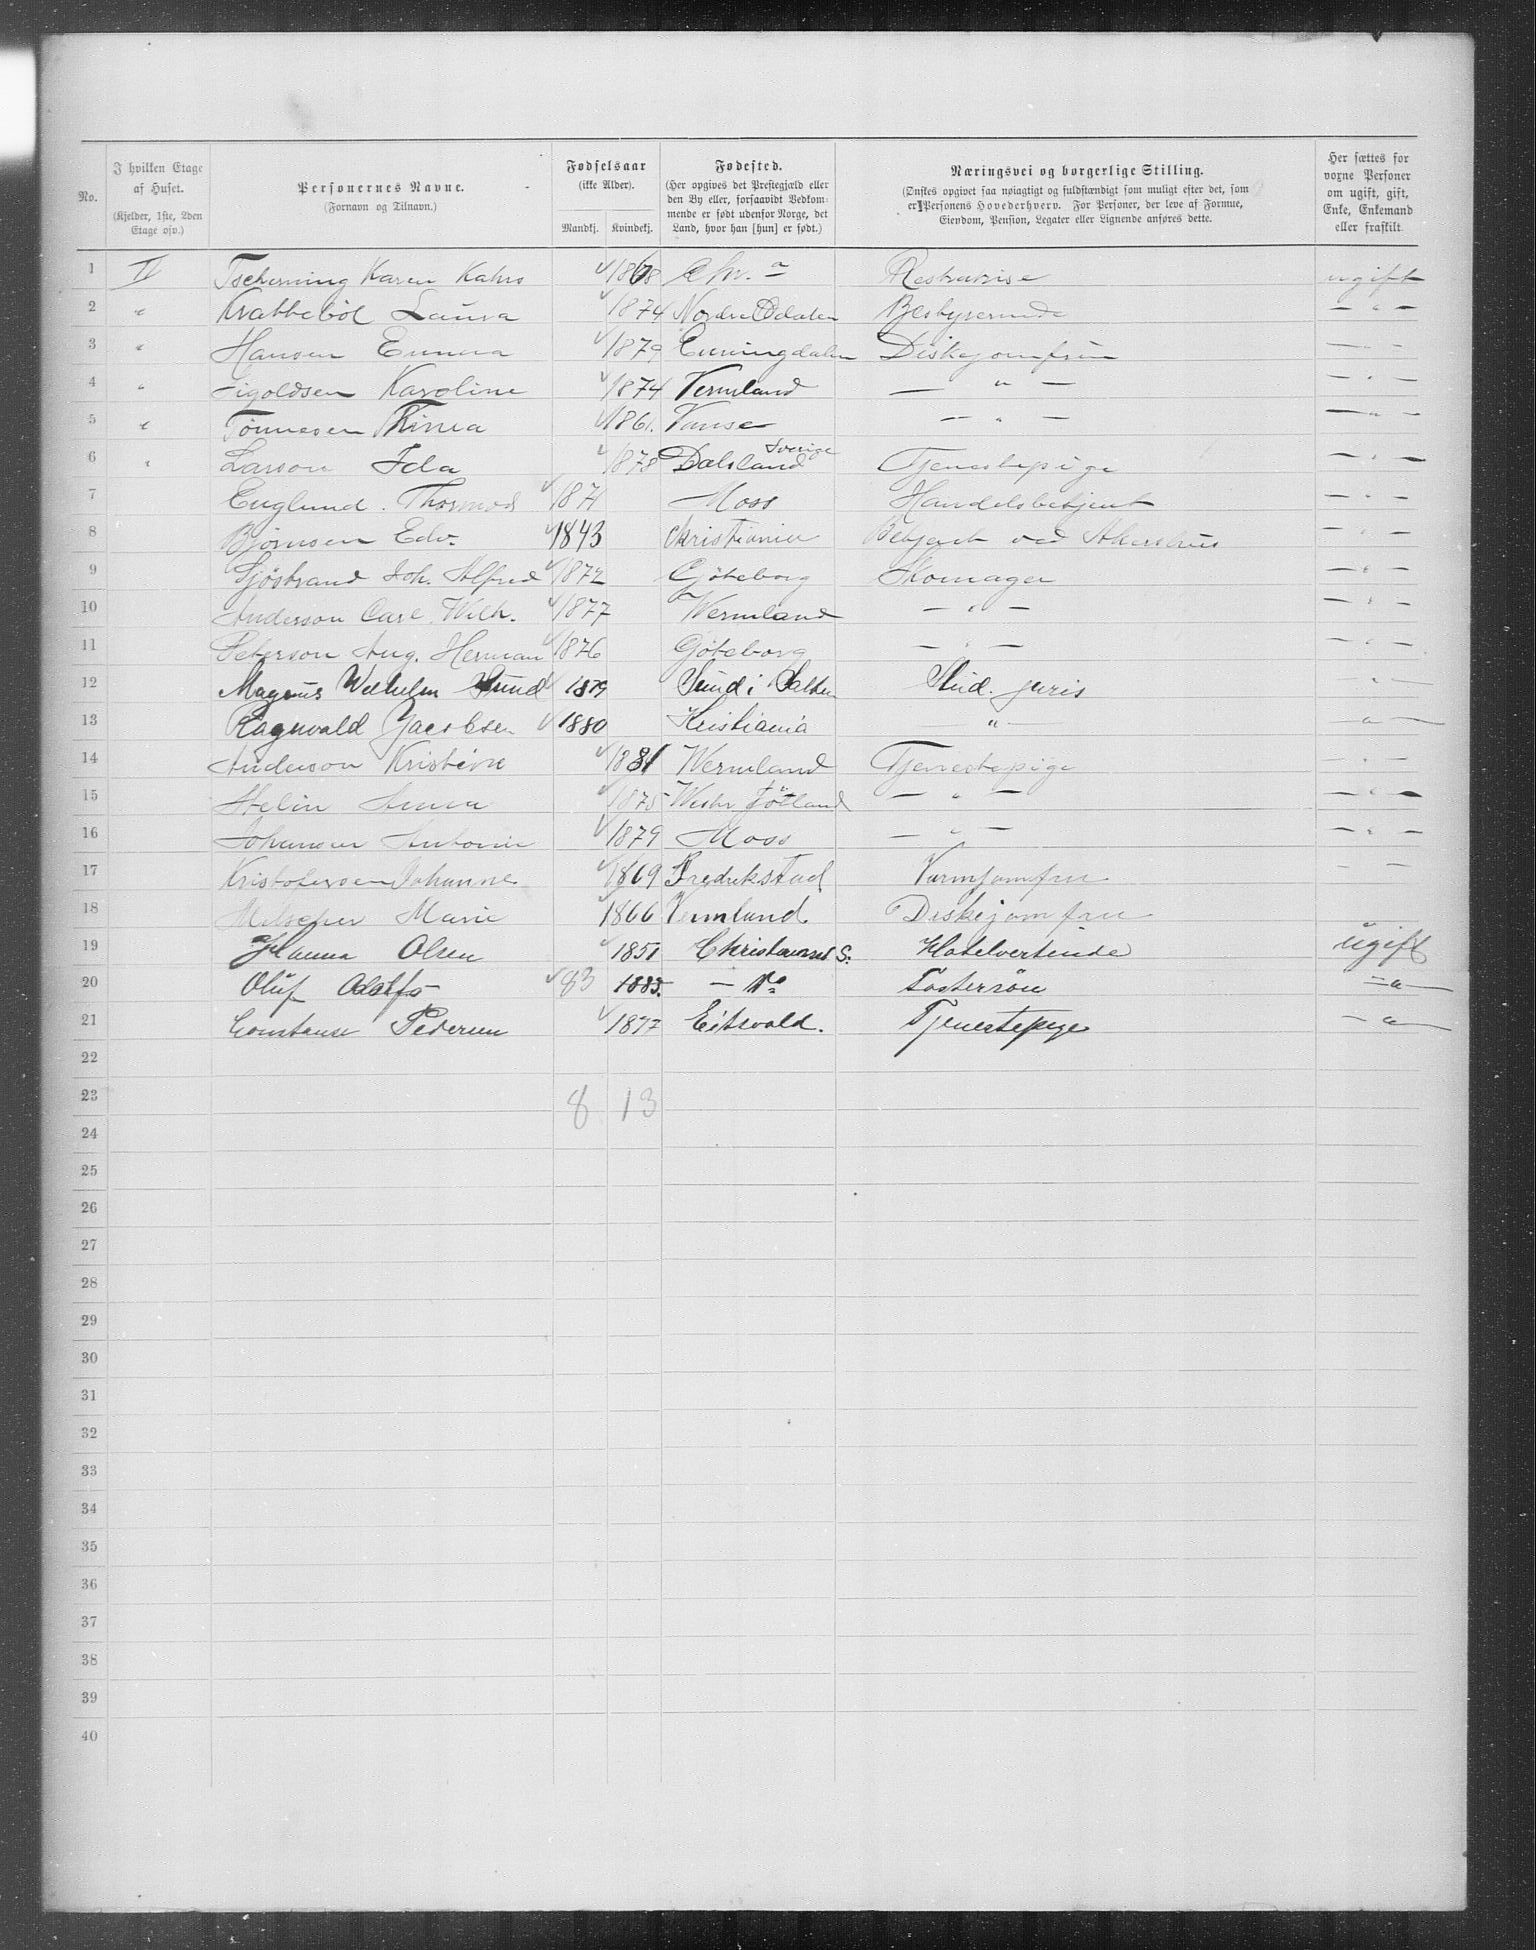 No. | I hvilken Etage af Huset. (Kjelder, 1ste, 2den Etage osv.) | Personernes Navne. (Fornavn og Tilnavn.) | Fødselsaar (ikke Alder). Mandkj. Kvindekj. | Fødested. (Her opgives det Prestegjæld eller den By eller, forsaavidt Vedkommende er født udenfor Norge, det Land, hvor han [hun] er født.) | Næringsvei og borgerlige Stilling. (Ønskes opgivet saa nøiagtigt og fuldstændigt som muligt efter det, som er Personens Hovederhverv. For Personer, der leve af Formue, Eiendom, Pension, Legater eller Lignende anføres dette. | Her sættes for voxne Personer om ugift, gift, Enke, Enkemand eller fraskilt.
1 II Tscherning Karen 1868 Chr. a ugift
2 " Krabbeböl Laura 1874 Nordre Odalen Bestyrerinde — " —
3 " Hansen Emma 1879 Enningdalen Diskejomfru — " —
4 " Karoline 1874 Vermland — " — — " —
5 " Tønnesen 1861. Vanse — " — — " —
6 " Larson Ida 1878 Dalsland Sverige Tjenestepige — " —
7 Englund. Thormod 1871 Moss Handelsbetjent — " —
8 Bjørnsen Edv. 1843 Christiania Betjent ved Akershus — " —
9 Sjöstrand Joh. Alfred 1872 Gjöteborg Skomager — " —
10 Anderson Carl Wilh. 1877 Wermland — " — — " —
11 Peterson Aug. Herman 1876 Göteborg — " — — " —
12 Magnus Wilhelm Sund 1879 Sund i Salten Stud. juris — " —
13 Ragnvald Jacobsen 1880 Kristiania " — — " —
14 Anderson Kristine 1881 Wermland Tjenestepige — " —
15 Anna 1875 Westr Götland — " — — " —
16 Johansen Antonie 1879 Moss — " — — " —
17 Kristofersen Johanne 1869 Fredrikstad Varmjomfru — —
18 Marie 1866 Vermland Diskejomfru
19 Hanna Olsen 1851 Christianssd S. Hotelvertinde ugift
20 Oluf Adolfs 83 1883. — Do Fostersön — " —
21 Constanse Pedersen 1877 Eidsvold. Tjenestepige — " —
22
23 8 13
24
25
26
27
28
29
30
31
32
33
34
35
36
37
38
39
40